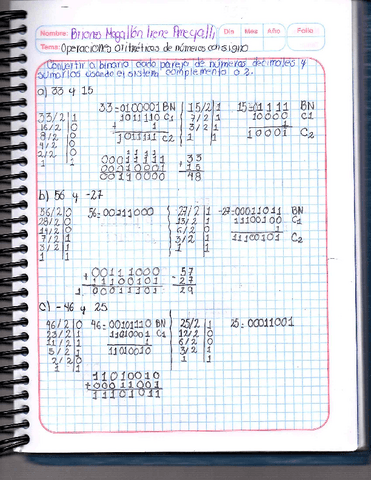 Nombre: Binares Magallón Irene Areyalli Día Mes Año Folio
Tema: Operaciones aritméticas de números con signo
Convertir a binario cada pareja de números decimales y
sumarlos usando el sistema complemento a 2.
a) 33 y 15
33=0100001 BN 15/2 1 15=01111 BN
33/2 1 1011110 C1 7/2 1 10000 C1
16/2 0 + 1 3/2 1 1
8/2 0 1011111 C2 1 1 10001 C2
4/2 0
2/2 0 11111
1 1 00100001 33
00001111 +15
00110000 48
b) 56 y -27
56/2 0 56=00111000 27/2 1 -27=00011011 BN
28/2 0 13/2 1 11100100 C1
14/2 0 6/2 0 1
7/2 1 3/2 1 11100101 C2
3/2 1 1 1
1 1
+00111000 57
11100101 -27
1 00011101 29
c) -46 y 25
46/2 0 46=00101110 BN 25/2 1 25=00011001
23/2 1 11010001 C1 12/2 0
11/2 1 1 6/2 0
5/2 1 11010010 3/2 1
2/2 0 1 1
1 1
11010010
+00011001
11101011